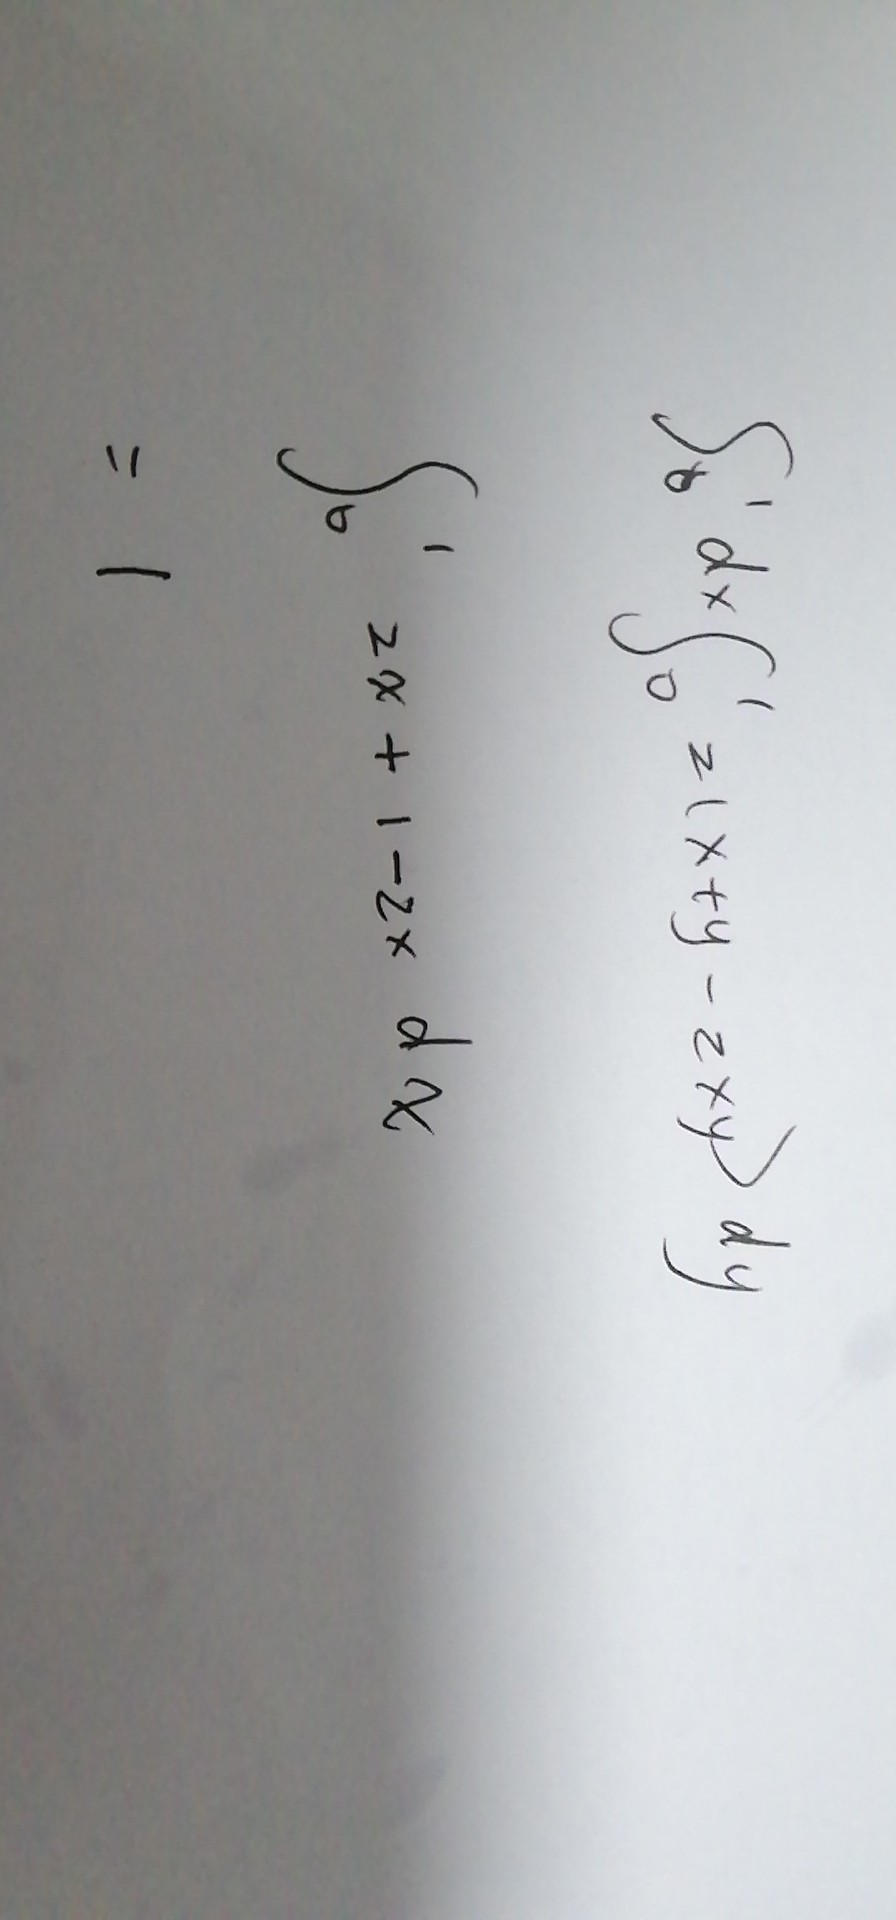 ∫₀¹ dx ∫₀¹ 2(x+y-2xy) dy
∫₀¹ 2x+1-2x dx
= 1